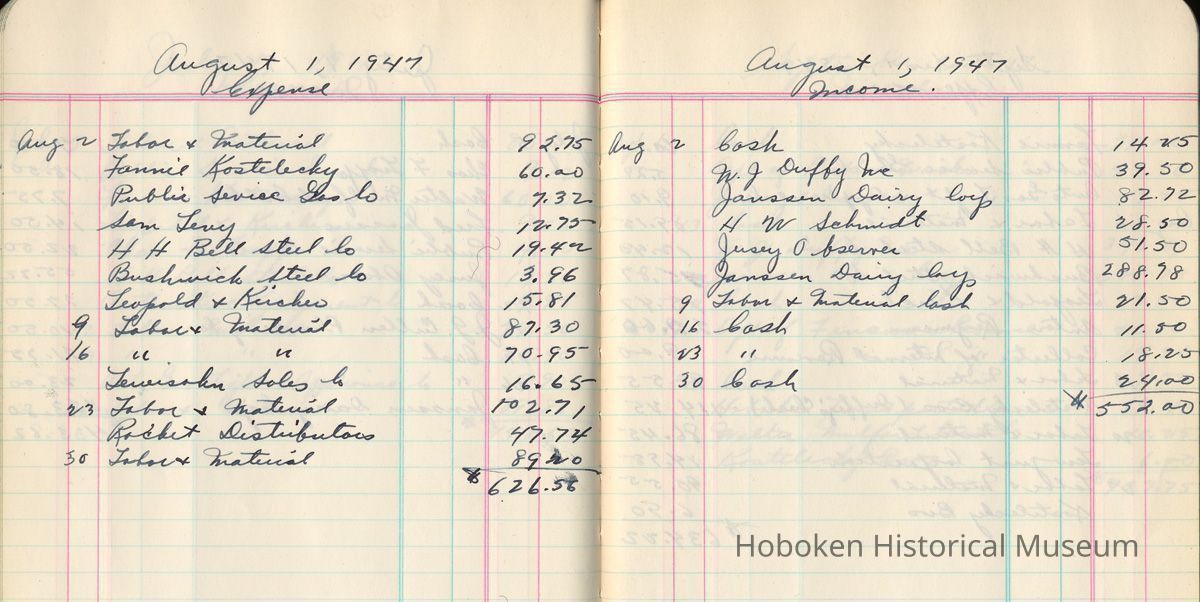 August 1, 1947
Expense
Aug 2 Labor & Material 92.75
Fannie Kostelecky 60.00
Public Sevice Gas Co 7.32
Sam Levy 12.75
H H Bell Steel Co 19.42
Bushwick Steel Co 3.96
Leopold & Kircher 15.81
9 Labor & Material 87.30
16 " " 70.95
Lewisohn Sales Co 16.65
23 Labor & Material 102.71
Rocket Distributors 47.74
30 Labor & Material 89.20
$ 626.56
August 1, 1947
Income.
Aug 2 Cash 14.25
W. J Duffy Inc 39.50
Janssen Dairy Corp 82.72
H W Schmidt 28.50
Jersey Observer 51.50
Janssen Dairy Corp 288.78
9 Labor & Material Cash 21.50
16 Cash 11.50
23 " 18.25
30 Cash 24.00
$ 552.00
Hoboken Historical Museum